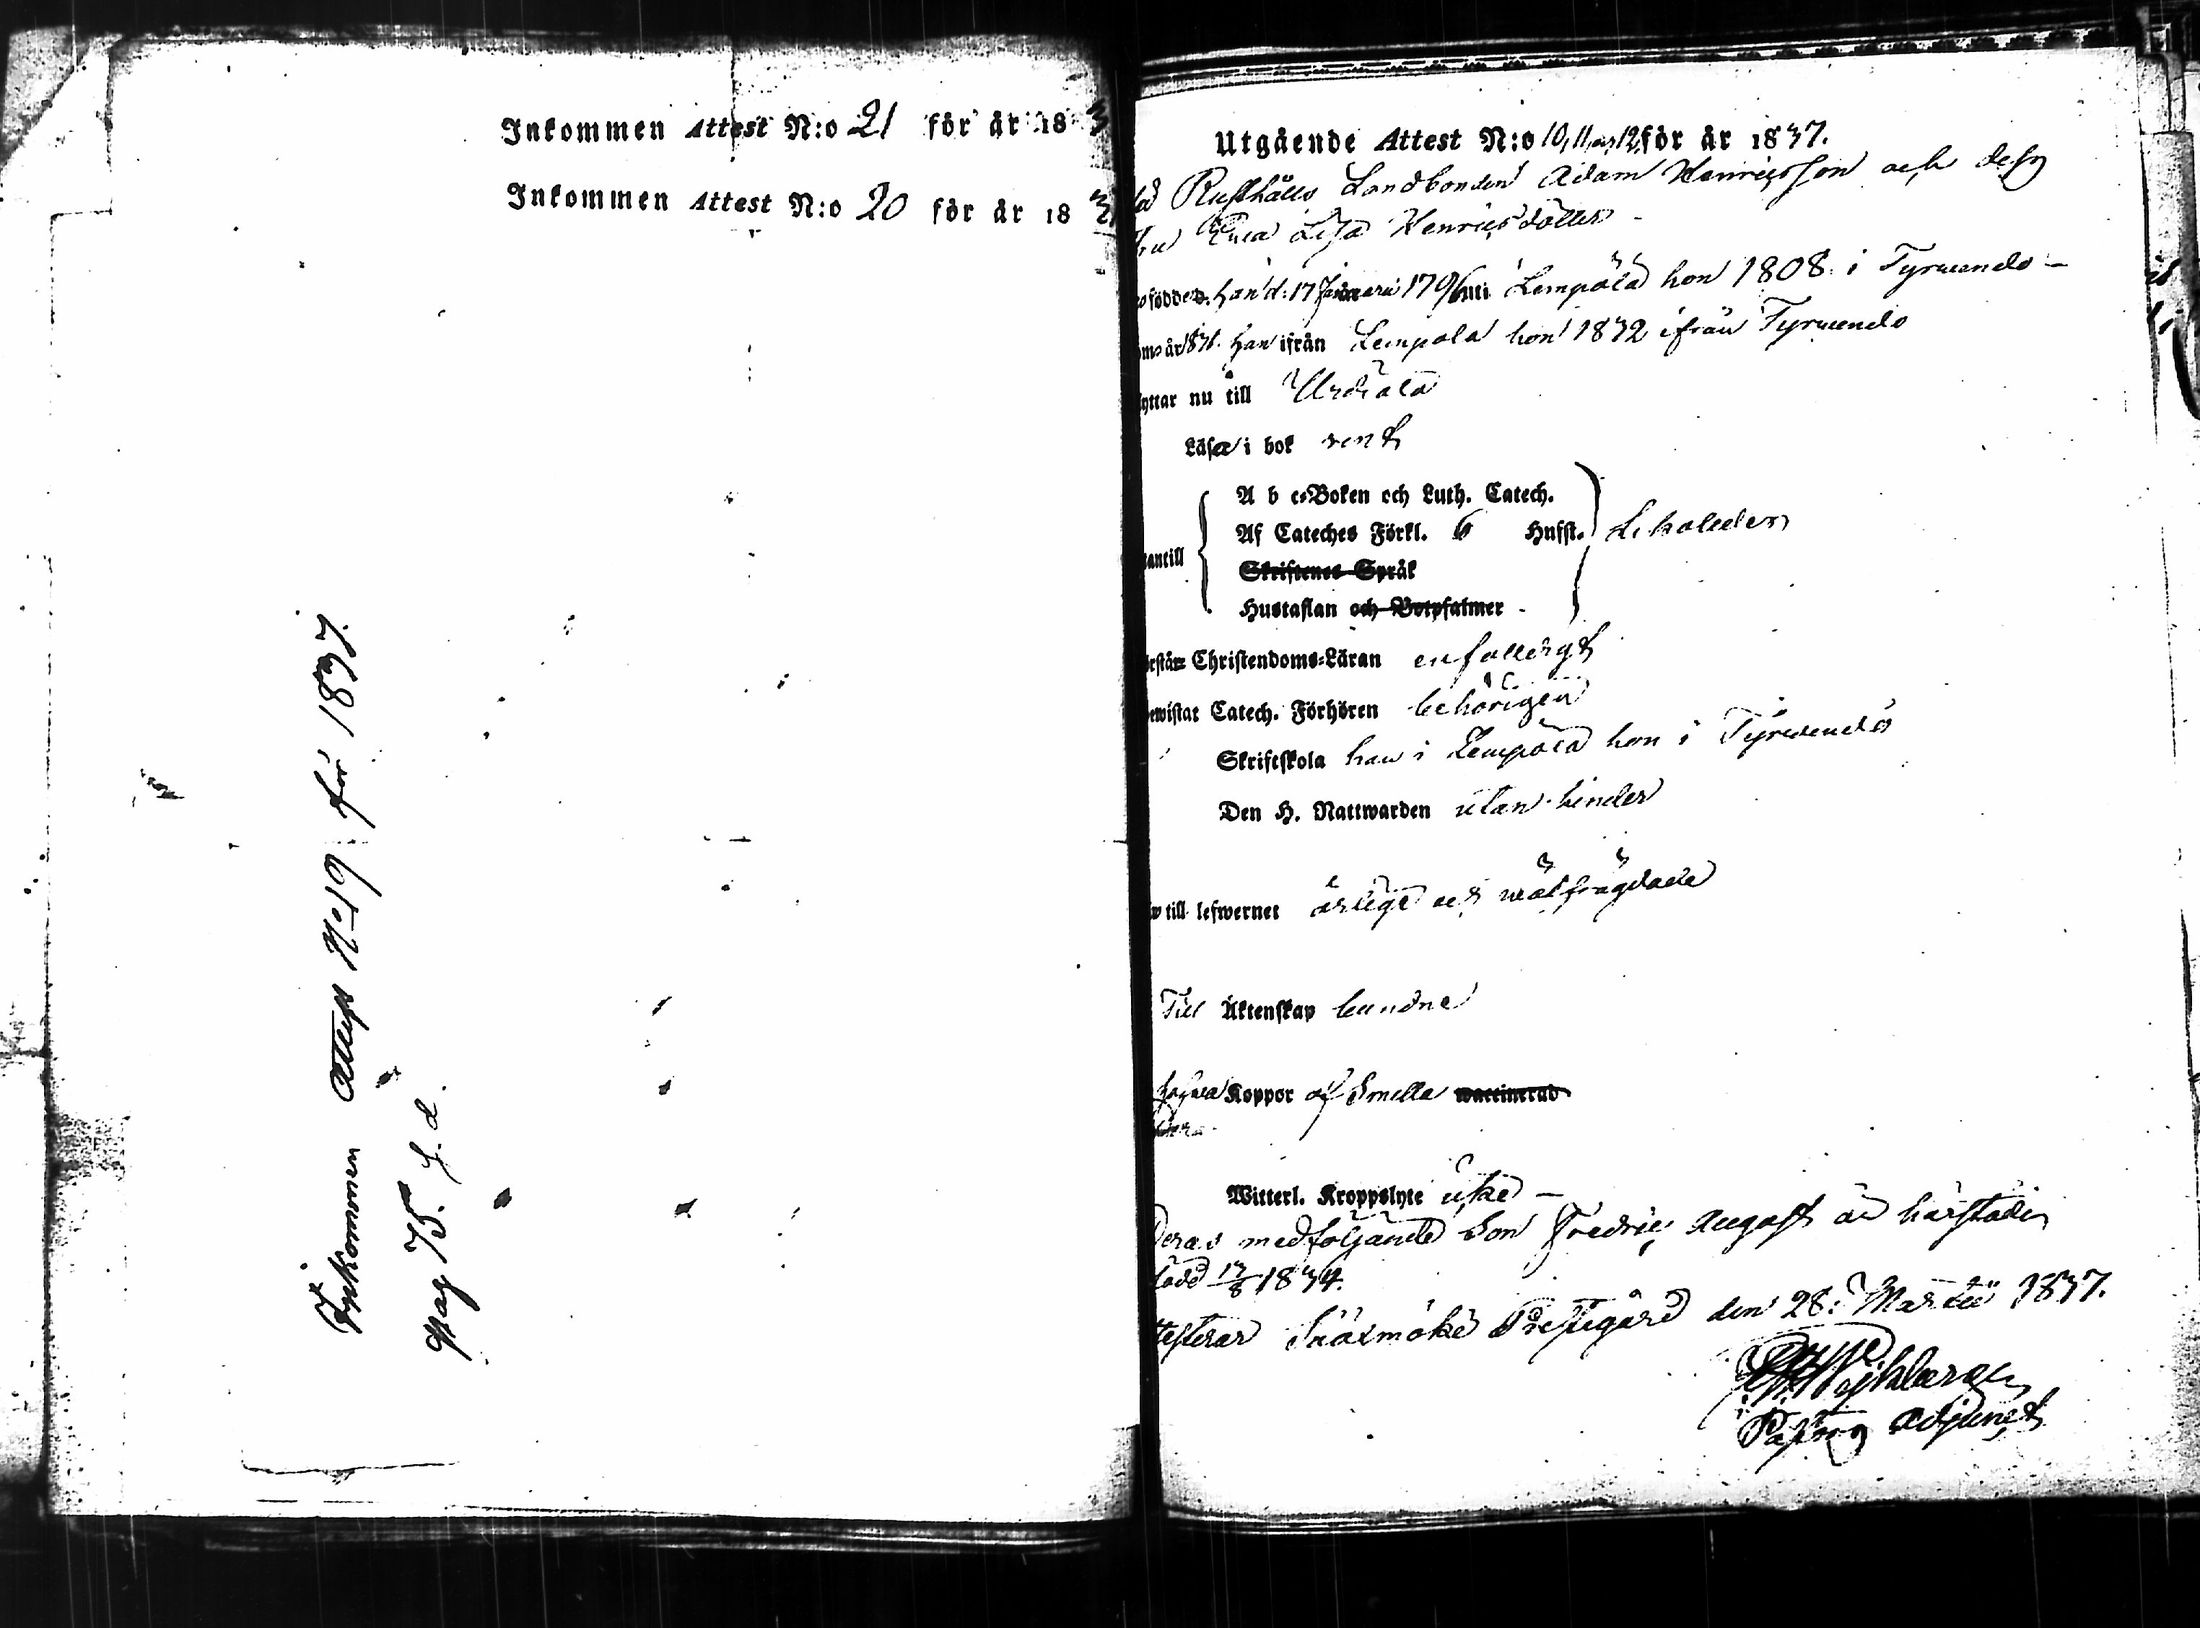 Inkommen Attest N:o 21 för år 183
Inkommen Attest N:o 20 för år 183
Inkommen Attest N:o 19 för 1837.
pag 75. f. d.
Utgående Attest N:o 10, 11, och 12, för år 1837.
Rusthålls Landbonden Adam Henricsson och dess
Eva Lisa Henricsdotter
födde d. Han d: 17 Januari 1796 uti Lempola hon 1808 i Tyrwendo –
år 1831. Han ifrån Lempola hon 1832 ifrån Tyrwendo
yttar nu till Urdiala
Läsa i bok rent
A b c-Boken och Luth. Catech.
Af Cateches Förkl. 6 Hufst.
antill
Skriftenes Språk
Hustaflan och Botpsalmer
rstår Christendoms-Läran enfalldigt
ewistat Catech. Förhören behörigen
Skriftskola han i Lempola hon i Tyrwendo
Den H. Nattwarden utan hinder
till lefwernet ärlige och wälfrägdade
Till Äktenskap bundne
Koppor af Smella waccinerad
Witterl. Kroppslyte icke –
Deras medföljande Son Fredric August är härstädes
född 17/8 1834.
testerar Prestegård den 28: Martii 1837.
Adjunct